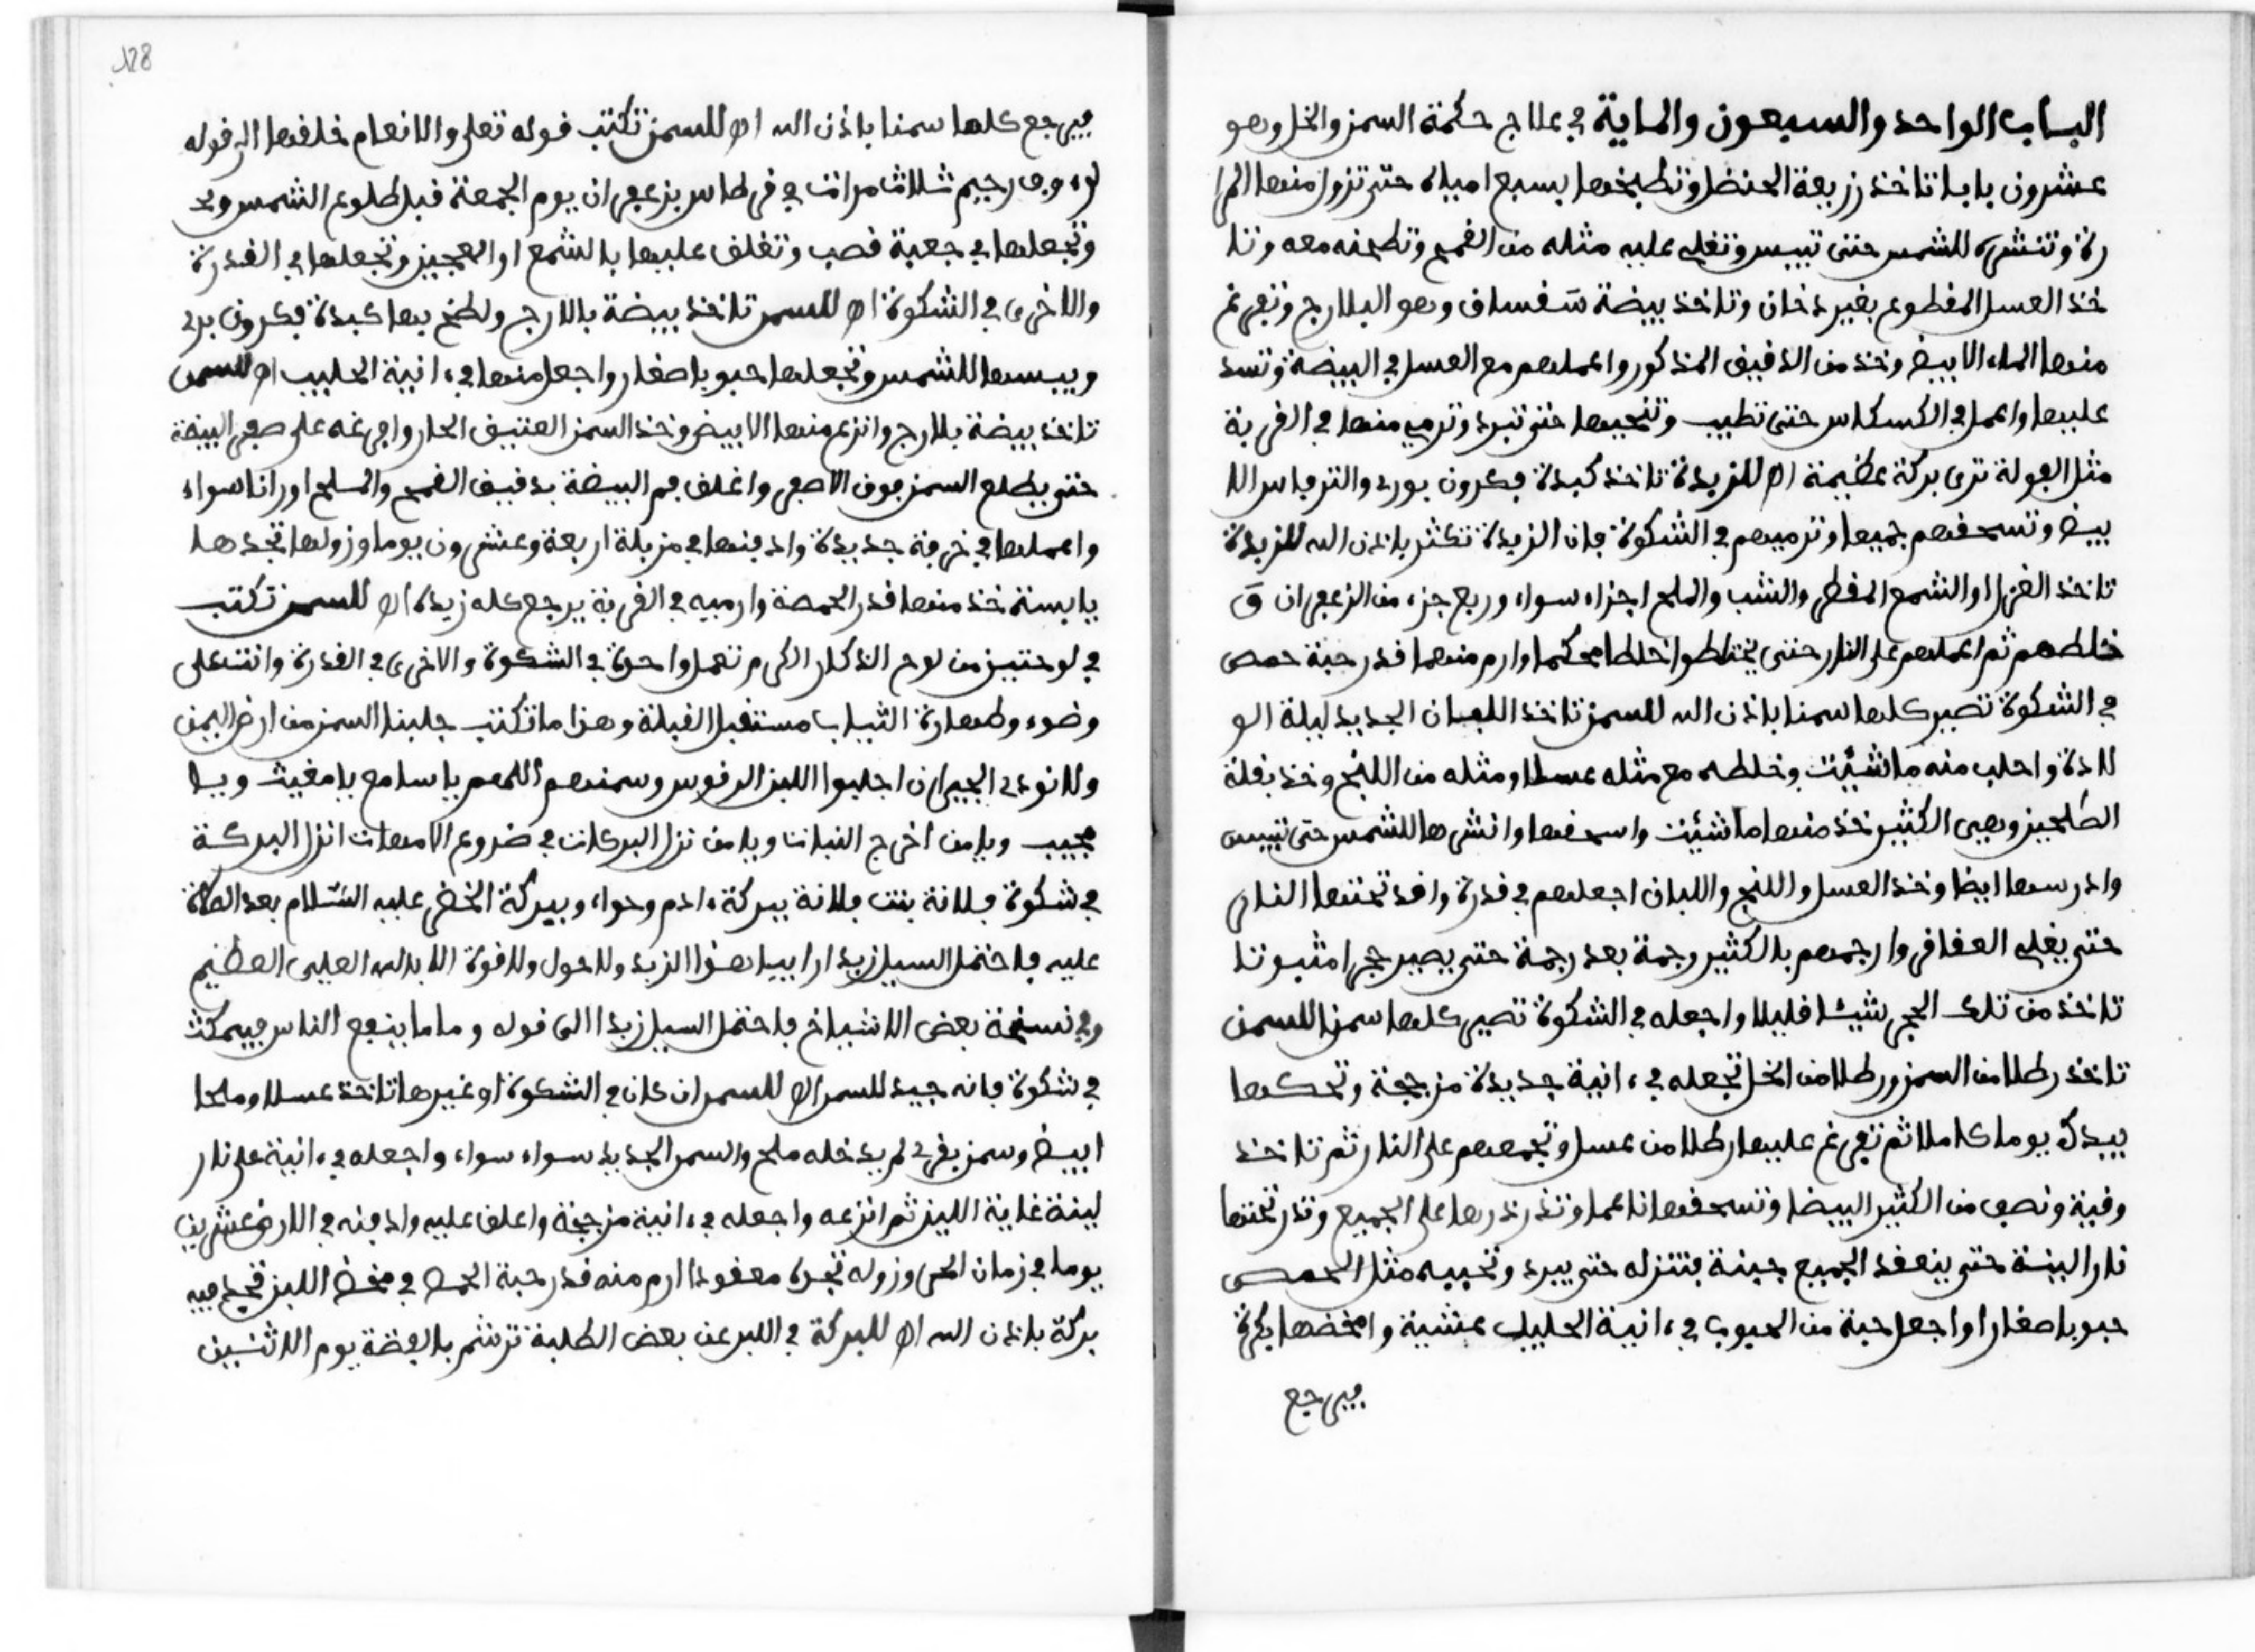 الباب الواحد والسبعون والماية في علاج حكمة السمن والخل وهو
عشرون بابا تاخذ زريعة الحنضل وتطبخها بسبع امياه حتى تزول منها المرا
رة وتنشره للشمس حتى تيبس وتغلي عليه مثله من القمح وتطحنه معه وتا
خذ العسل المقطوع بغير دخان وتاخذ بيضة سفساف وهو البلارج وتفرغ
منها الماء الابيض وخذ من الدقيق المذكور واعملهم مع العسل في البيضة وتسد
عليها واعمل في الكسكاس حتى تطيب وتنحيها حتى تبرد وترمي منها في القربة
مثل الفولة ترى بركة عظيمة اه للزبدة تاخذ كبدة فكرون بوري والترفاس الا
بيض وتسحقهم جميعا وترميهم في الشكوة فان الزبدة تكثر باذن الله للزبدة
تاخذ الغرا والشمع المقطر والشب والملح اجزاء سواء وربع جزء من الزعفران و
خلطهم ثم اعملهم على النار حتى يختلطوا خلطا محكما وارم منهما قدر حبة حمص
في الشكوة تصير كلها سمنا باذن الله للسمن تاخذ اللبان الجديد ليلة الو
لادة واحلب منه ما شيئت وخلطه مع مثله عسلا ومثله من اللنج وخذ بقلة
الطلحيز وهي الكثير خذ منها ما شئت واسحقها وانشرها للشمس حتى تيبس
وادرسها ايضا وخذ العسل واللنج واللبان اجعلهم في قدرة واقد تحتها النار
حتى يغلي العقاقر وارجمهم بالكثير رجمة بعد رجمة حتى يصير حجرا مثبوتا
تاخذ من تلك الحجر شيئا قليلا واجعله في الشكوة تصير كلها سمنا للسمن
تاخذ رطلا من السمن ورطلا من الخل تجعله في ءانية جديدة مزججة وتحكها
بيدك يوما كاملا ثم تفرغ عليها رطلا من عسل وتجمعهم على النار ثم تاخذ
وقية ونصف من الكثير البيضا وتسحقها ناعما وتذرذرها على الجميع وتدر تحتها
نار البنة حتى ينعقد الجميع جبنة فتنزله حتى يبرد وتحببه مثل الحمص
حبوبا صغارا واجعل حبة من الحبوب في ءانية الحليب عشية وامخضها بكرة
فيرجع
128
فيرجع كلها سمنا باذن الله اه للسمن تكتب قوله تعلى والانعام خلقها الى قوله
لرءوف رحيم ثلاث مرات في قرطاس بزعفران يوم الجمعة قبل طلوع الشمس
وتجعلها في جعبة قصب وتغلف عليها بالشمع او العجين وتجعلها في القدرة
والاخرى في الشكوة اه للسمن تاخذ بيضة بالارج ولطخ بها كبدة فكرون بري
ويبسها للشمس وتجعلها حبوبا صغار واجعل منها في ءانية الحليب اه للسمن
تاخذ بيضة بلارج وانزع منها الابيض وخذ السمن العتيق الحار وافرغه على صفر البيضة
حتى يطلع السمن فوق الاصفر واغلف فم البيضة بدقيق القمح والملح اوزانا سواء
واعملها في خرقة جديدة وادفنها في مزبلة اربعة وعشرون يوما وزولها تجدها
يابسة خذ منها قدر الحمصة وارميه في القربة يرجع كله زبدة اه للسمن تكتب
في لوحتين من لوح الذكار الكرم تعمل واحدة في الشكوة والاخرى في القدرة وانت على
وضوء وطهارة الثياب مستقبل القبلة وهذا ما تكتب جلبنا السمن من ارض اليمن
ولا نودي الجيران اجلبوا اللبن الرفوس وسمنهم اللهم يا سامع يا مغيث ويا
مجيب ويا من اخرج النبات ويا من نزل البركات في ضروع الامهات انزل البركة
في شكوة فلانة بنت فلانة ببركة ءادم وحواء وببركة الخضر عليه السلام بعد الصلاة
عليه فاحتمل السيل زبدا رابيا هذا الزبد ولا حول ولا قوة الا بالله العلي العظيم
وفي نسخة بعض الاشياخ فاحتمل السيل زبدا الى قوله وماما ينفع الناس فيمكث
في شكوة فانه جيد للسمن اه للسمن ان كان في الشكوة او غيرها تاخذ عسلا وملحا
ابيض وسمن بقري لم يدخله ملح والسمن الجديد سواء سواء واجعله في ءانية على نار
لينة غاية اللين ثم انزعه واجعله في ءانية مزججة واغلف عليه وادفنه في الارض عشرين
يوما في زمان الحر وزوله تجده معقودا ارم منه قدر حبة الحمص في مخض اللبن تجد فيه
بركة باذن الله اه للبركة في اللبن عن بعض الطلبة ترشم بالفضة يوم الاثنين